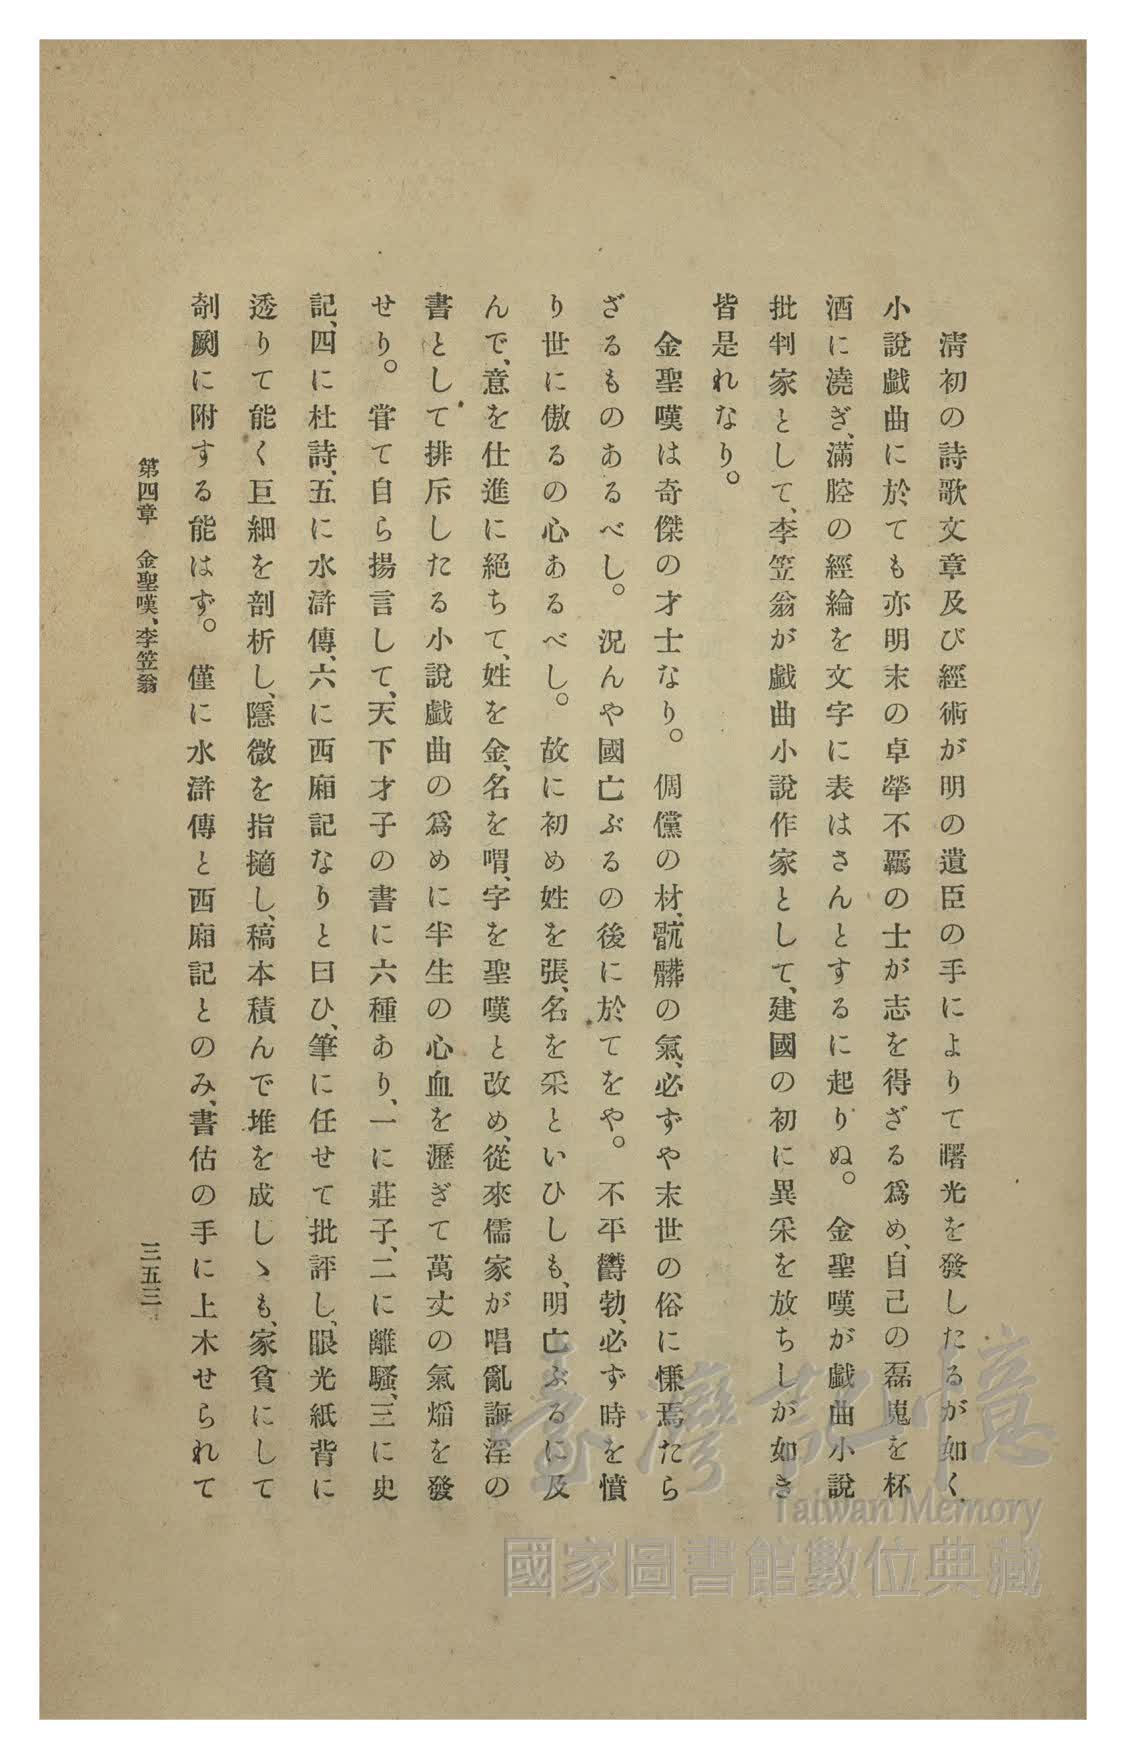 淸初の詩歌文章及び經術が明の遺臣の手によりて曙光を發したるが如く、
小說戲曲に於ても亦明末の卓犖不羈の士が志を得ざる爲め、自己の磊嵬を杯
酒に澆ぎ、滿腔の經綸を文字に表はさんとするに起りぬ。金聖嘆が戲曲小說
批判家として、李笠翁が戲曲小說作家として、建國の初に異采を放ちしが如き
皆是れなり。
金聖嘆は奇傑の才士なり。倜儻の材、骯髒の氣、必ずや末世の俗に慊焉たら
ざるものあるべし。況んや國亡ぶるの後に於てをや。不平欝勃、必ず時を憤
り世に傲るの心あるべし。故に初め姓を張、名を采といひしも、明亡ぶるに及
んで、意を仕進に絕ちて、姓を金、名を喟、字を聖嘆と改め、從來儒家が唱亂誨淫の
書として排斥したる小說戲曲の爲めに半生の心血を瀝ぎて萬丈の氣焰を發
せり。甞て自ら揚言して、天下才子の書に六種あり、一に莊子、二に離騷、三に史
記、四に杜詩、五に水滸傳、六に西廂記なりと曰ひ、筆に任せて批評し、眼光紙背に
透りて能く巨細を剖析し、隱微を指擿し、稿本積んで堆を成しゝも、家貧にして
剞劂に附する能はず。僅に水滸傳と西廂記とのみ、書估の手に上木せられて
第四章　金聖嘆、李笠翁
三五三
臺灣記憶
Taiwan Memory
國家圖書館數位典藏